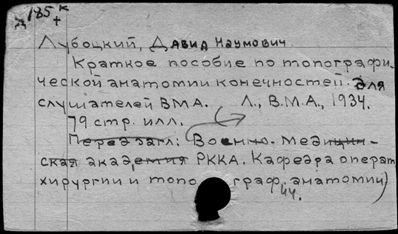 185 к
Лубоцкий, Давид Наумович.
Краткое пособие по топографи-
ческой анатомии конечностей. Для
слушателей ВМА. Л., В.М.А., 1934.
79 стр. илл.
Перед загл: Военно. Медицин-
ская академия РККА. Кафедра операт
хирургии и топограф. анатомии)
44.